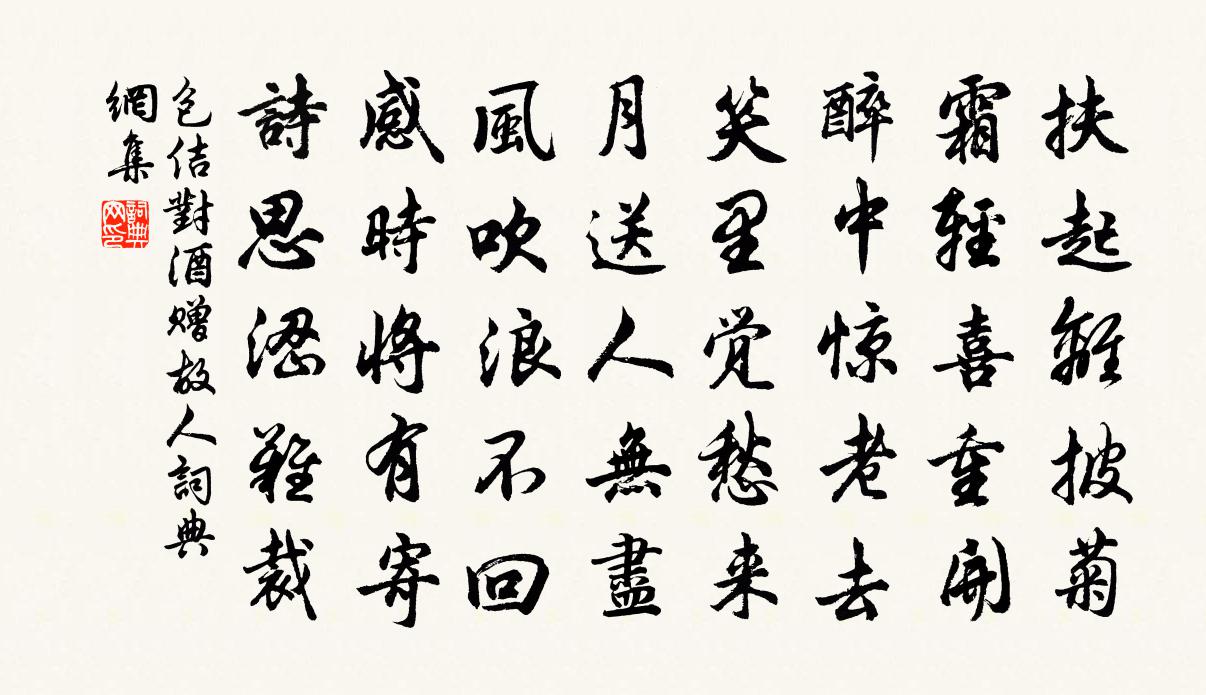 扶起離披菊
霜輕喜重開
醉中惊老去
笑里觉愁来
月送人無盡
風吹浪不回
感時將有寄
詩思澀難裁
包佶對酒贈故人詞典
網集
詞典
网印